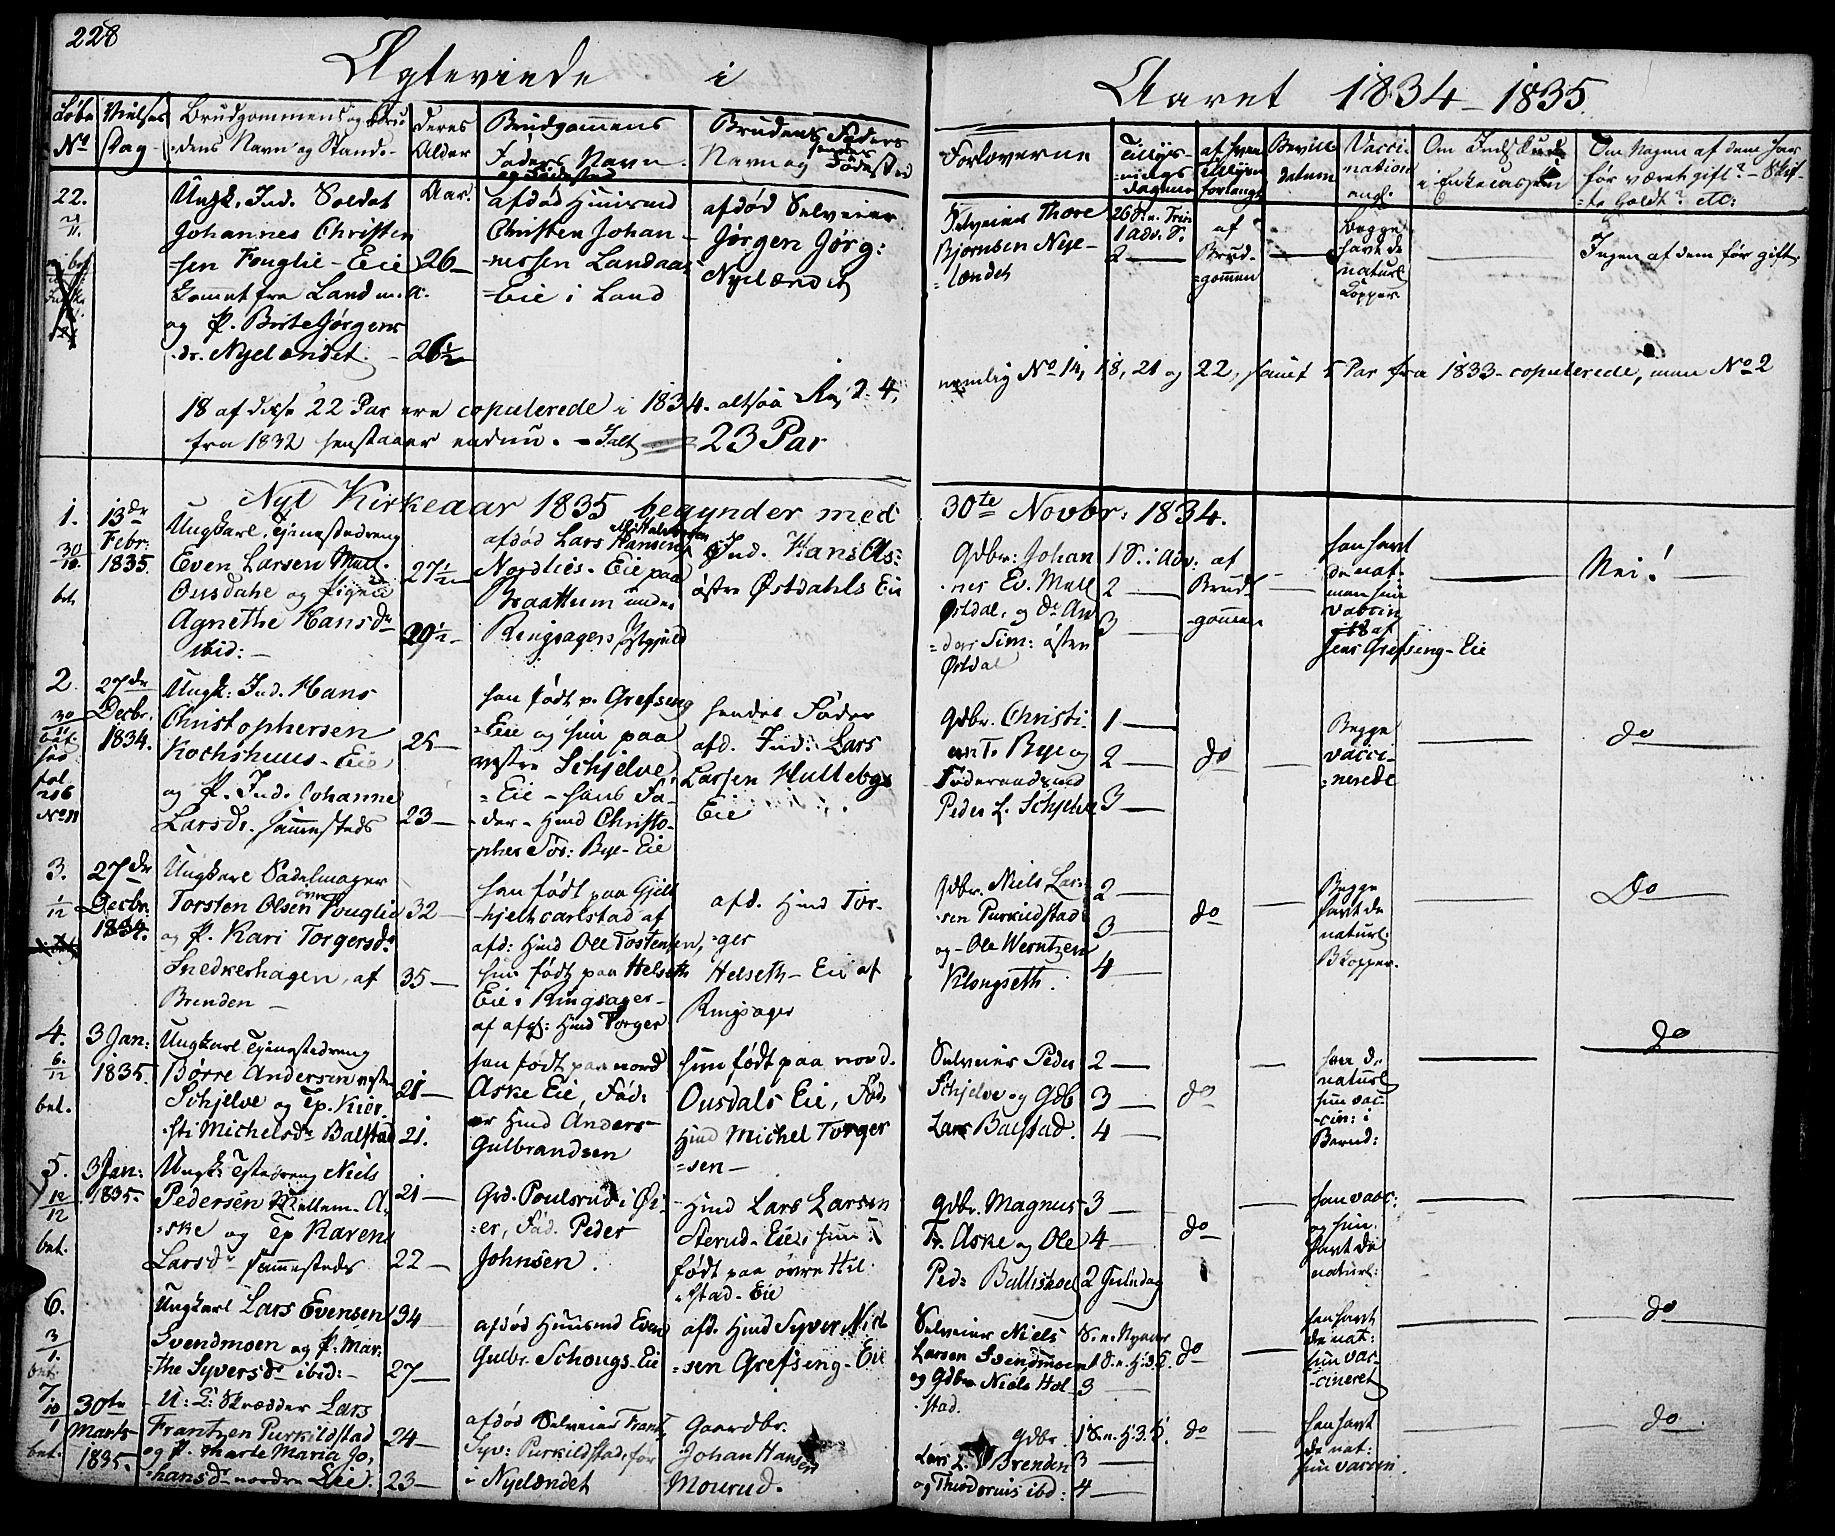 228
Ægteviede i
Aaret 1834-1835.
Løbe No
Vielses Dag
Brudgommens og Brudens Navn og Stand.
Deres Alder
Brudgommens Faders Navn og Fødested
Brudens Faders Navn og hendes Fødested
Forloverne
Tillysnings Dagene
af hvem Tillysn. forlangt
Bevill. Datum
Vaccination angl.
Om Indskud i Enkecassen
Om Nogen af dem har før været gift? - Skifte holdt? etc:
22.
Ungk. Ind. Soldat
Johannes Christen
-sen Fouglie-Eie
kommet fra Land
og P. Birte Jørgens
dr. Nyelændet.
Aar.
26-
26½
afdød Huusmd
Christen Johan-
-nessen Landaas
-Eie i Land
afdød Selveier
Jørgen Jørg:
Nyelændet
Selveier Thore
Bjørnsen Nye-
-lændet
26 S. n. Trin
1 Adv. S.
2 —
af
Brud-
-gommen
Begge
havt de
naturl.
Kopper
Ingen af dem før gift.
18 af disse 22 Par ere copulerede i 1834. altsaa
nemlig No 14, 18, 21 og 22, samt 5 Par fra 1833 copulerede, men No 2
fra 1832 henstaaer endnu. - Ialt = 23 Par
Nyt Kirkeaar 1835 begynder med
30te Novbr: 1834.
1.
30
bet.
13de
Febr.
1835.
Ungkarl, Tjenestedreng
Even Larsen Mell.
Ousdahl og Pigen
Agnethe Hansdr
ibid: -
27½
29½-
afdød Lars Hansen
Nordlies-Eie paa
Braattum under
Ringsagers Præstegjeld
Ind. Hans As:
østre Østdahls Eie
Gdbr: Johan
-nes Ev. Mell
Østdal, og do An
-ders Sim: østre
Østdal
1 S: i Adv:
2 —
3 —
af
Brud-
-gommen
han havt
de nat.
men hun
vaccin
af
Jens Grefseng-Eie
Nei!
2
30
11
bet.
See
fol
216
No 11
27de
Decbr.
1834.
Ungk: Ind. Hans
Christophersen
Kochshuus-Eie
og P. Ind. Johanne
Larsdr. sammesteds
25-
23-
han født p. Grefseng
-Eie og hun paa
vestre Schjelve
-Eie - hans Fa-
-der - Hmd Christo-
-pher Tor: Bye-Eie
hendes Fader
afd. Ind: Lars
Larsen Hullebys
Eie
Gdbr. Christi-
an T. Bye og
Føderaadsmd
Peder L. Schjelve
1 —
2 —
3 —
do
Begge
vacci-
-nerede
do
3.
1
12
27de
Decbr:
1834.
Ungkarl Sadelmager
Torsten Olsen øvre Fouglie
og P. Kari Torgersdr
Snedkerhagen, af
Brenden -
32-
35-
han født paa
hjelt Carlstad af
afd: Hmd Ole Tostensen,
hun født paa Helseth
Eie i Ringsager-
af afg: Hmd Torger
afd. Hmd Tor-
-ger
Helseth-Eie af
Ringsager
Gdbr. Niels Lar-
-sen Purkildstad
og Ole Werntzen
Klongseth.
2 —
3 —
4 —
do
Begge
havt de
naturl.
B Kopper.
Do
4.
6
12
bet.
3 Jan:
1835.
Ungkarl Tjenestedreng
Børre Andersen vestre
Schjelve og Tp. Kier
-sti Michelsdr Balstad
21-
21.
han født paa nord
Aske Eie, Fad:
er Hmd Anders
Gulbrandsen
hun født paa nord.
Ousdals Eie, Fad.
Hmd Michel Torger
-sen-
Selveier Peder
Schjelve og Gdb
Lars Balstad.
2 —
3 —
4 —
do
han de
naturl
hun vac-
-cin: i
Barnd:
do
5.
12
12
bet.
3 Jan:
1835-
Ungk: Tjstedreng Niels
Pedersen Mellem-A-
-ske og Tp Karen
Larsdr sammesteds
21-
22-
Grd. Poulsrud i Øi-
-er, Fad. Peder
Johnsen.
Hmd Lars Larsen
Sterud-Eie; hun
født paa øvre Hil-
-stad-Eie
Gdbr. Magnus
Tr. Aske og Ole
Ped: Ballishoel
3 —
4 —
2 Juledag
do
han vacc:
og hun
havt de
naturl:
6.
3
1.
bet.
Ungkarl Lars Evensen
Svendmoen og P. Mar-
-the Syversdr ibid:-
34-
27-
afdød Huusmd Even
Gulbr. Schougs-Eie
afd. Hmd Syver Niel
-sen Grefseng-Eie
Selveier Niels
Larsen Svendmoen
og Gdbr Niels Hol-
-stad.
S. n. Nyaar
1 S. n. H.3.K.
3 —
do
han havt
de nat:
hun vac-
-cineret
do
7.
10
1
bet.
30te
Marts
1835.
U: K: Skrædder Lars
Frantzen Purkildstad
og P. Marte Maria Jo-
-hansdr nordre Lie.
24-
23-
afdød Selveier Frants
Syv: Purkildstad, før
i Nyelændet
Gaardbr.
Johan Hansen
Mourud.
Gdbr.
Lars L. Brenden
og Theodorius ibd:
1 S. n. H.3.K.
3 —
4 —
do
han havt
de nat:
hun vaccin.
do